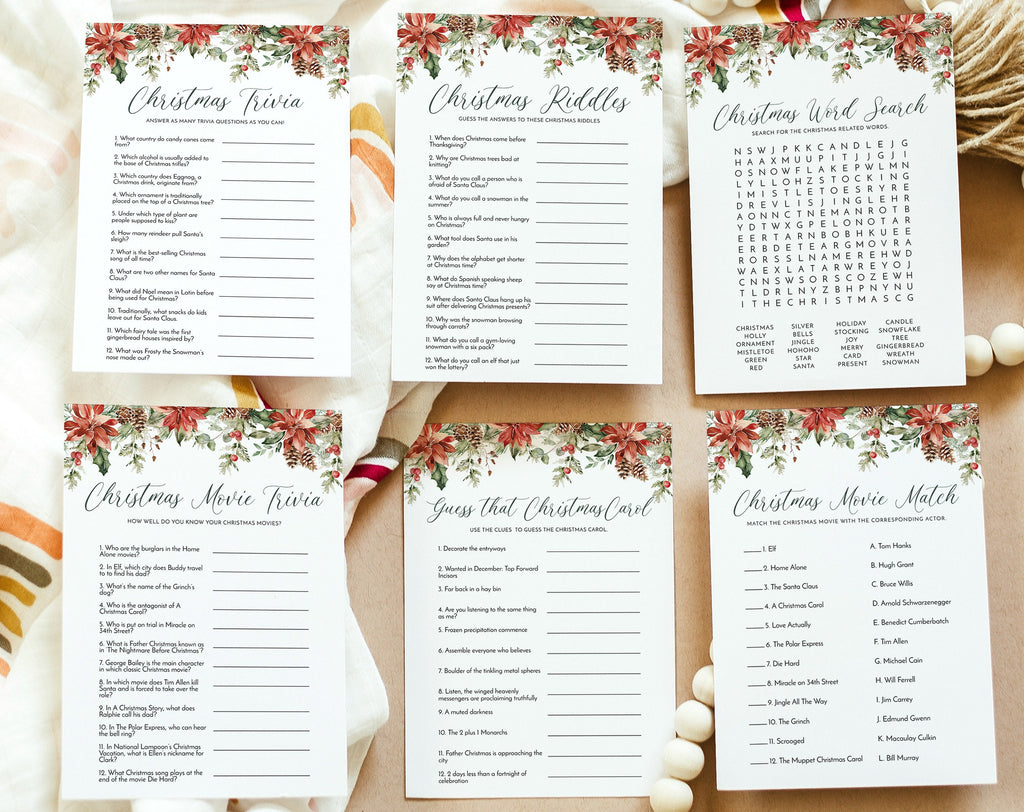 Christmas Trivia
ANSWER AS MANY TRIVIA QUESTIONS AS YOU CAN!
1. What country do candy canes come
from?
2. Which alcohol is usually added to
the base of Christmas trifles?
3. Which country does Eggnog, a
Christmas drink, originate from?
4. Which ornament is traditionally
placed on the top of a Christmas tree?
5. Under which type of plant are
people supposed to kiss?
6. How many reindeer pull Santa's
sleigh?
7. What is the best-selling Christmas
song of all time?
8. What are two other names for Santa
Claus?
9. What did Noel mean in Latin before
being used for Christmas?
10. Traditionally, what snacks do kids
leave out for Santa Claus.
11. Which fairy tale was the first
gingerbread houses inspired by?
12. What was Frosty the Snowman's
nose made out?
Christmas Riddles
GUESS THE ANSWERS TO THESE CHRISTMAS RIDDLES
1. When does Christmas come before
Thanksgiving?
2. Why are Christmas trees bad at
knitting?
3. What do you call a person who is
afraid of Santa Claus?
4. What do you call a snowman in the
summer?
5. Who is always full and never hungry
on Christmas?
6. What tool does Santa use in his
garden?
7. Why does the alphabet get shorter
at Christmas time?
8. What do Spanish speaking sheep
say at Christmas time?
9. Where does Santa Claus hang up his
suit after delivering Christmas presents?
10. Why was the snowman browsing
through carrots?
11. What do you call a gym-loving
snowman with a six pack?
12. What do you call an elf that just
won the lottery?
Christmas Word Search
SEARCH FOR THE CHRISTMAS RELATED WORDS.
N S W J P K K C A N D L E J G
H A A X M U U P I T J J G J I
O S N O W F L A K E P W L M N
L Y L L O H Z S T O C K I N G
I M I S T L E T O E S R Y R E
D R E V L I S J I N G L E H R
A O N N C T N E M A N R O T B
Y D T W X G P E L O N O T A R
E E R T A R N B O B H K U E E
E R B D E T E A R G M O V R A
R O R S S L N A M E R E H W D
W A E X L A T A R W R E Y O J
C N N S W S O R S C O Z E W H
T L D R L N Y Z B H P N Y N U
I T H E C H R I S T M A S C G
CHRISTMAS SILVER HOLIDAY CANDLE
HOLLY BELLS STOCKING SNOWFLAKE
ORNAMENT JINGLE JOY TREE
MISTLETOE HOHOHO MERRY GINGERBREAD
GREEN STAR CARD WREATH
RED SANTA PRESENT SNOWMAN
Christmas Movie Trivia
HOW WELL DO YOU KNOW YOUR CHRISTMAS MOVIES?
1. Who are the burglars in the Home
Alone movies?
2. In Elf, which city does Buddy travel
to to find his dad?
3. What's the name of the Grinch's
dog?
4. Who is the antagonist of A
Christmas Carol?
5. Who is put on trial in Miracle on
34th Street?
6. What is Father Christmas known as
in 'The Nightmare Before Christmas'?
7. George Bailey is the main character
in which classic Christmas movie?
8. In which movie does Tim Allen kill
Santa and is forced to take over the
role?
9. In A Christmas Story, what does
Ralphie call his dad?
10. In The Polar Express, who can hear
the bell ring?
11. In National Lampoon's Christmas
Vacation, what is Ellen's nickname for
Clark?
12. What Christmas song plays at the
end of the movie Die Hard?
Guess that Christmas Carol
USE THE CLUES TO GUESS THE CHRISTMAS CAROL.
1. Decorate the entryways
2. Wanted in December: Top Forward
Incisors
3. Far back in a hay bin
4. Are you listening to the same thing
as me?
5. Frozen precipitation commence
6. Assemble everyone who believes
7. Boulder of the tinkling metal spheres
8. Listen, the winged heavenly
messengers are proclaiming truthfully
9. A muted darkness
10. The 2 plus 1 Monarchs
11. Father Christmas is approaching the
city
12. 2 days less than a fortnight of
celebration
Christmas Movie Match
MATCH THE CHRISTMAS MOVIE WITH THE CORRESPONDING ACTOR.
____1. Elf A. Tom Hanks
____2. Home Alone B. Hugh Grant
____3. The Santa Claus C. Bruce Willis
____4. A Christmas Carol D. Arnold Schwarzenegger
____5. Love Actually E. Benedict Cumberbatch
____6. The Polar Express F. Tim Allen
____7. Die Hard G. Michael Cain
____8. Miracle on 34th Street H. Will Ferrell
____9. Jingle All The Way I. Jim Carrey
____10. The Grinch J. Edmund Gwenn
____11. Scrooged K. Macaulay Culkin
____12. The Muppet Christmas Carol L. Bill Murray